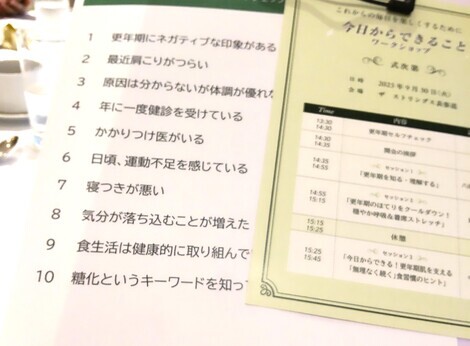 1 更年期にネガティブな印象がある
2 最近肩こりがつらい
3 原因は分からないが体調が優れな
4 年に一度健診を受けている
5 かかりつけ医がいる
6 日頃、運動不足を感じている
7 寝つきが悪い
8 気分が落ち込むことが増えた
9 食生活は健康的に取り組んで
10 糖化というキーワードを知っ
これからの毎日を楽しくするために
今日からできること
ワークショップ
式次第
日時 2025年9月30日(火)
会場 ザ ストリングス表参道
Time 内容
13:30
14:30 更年期セルフチェック
14:30
14:35 開会の挨拶
14:35
14:55 セッション1
「更年期を知る・理解する」
14:55
15:15 「更年期のほてりをクールダウン!
穏やか呼吸&養腰ストレッチ」
15:15
15:25 休憩
15:25
15:45 セッション3
「今日からできる!更年期肌を支える
「無理なく続く」食習慣のヒント」